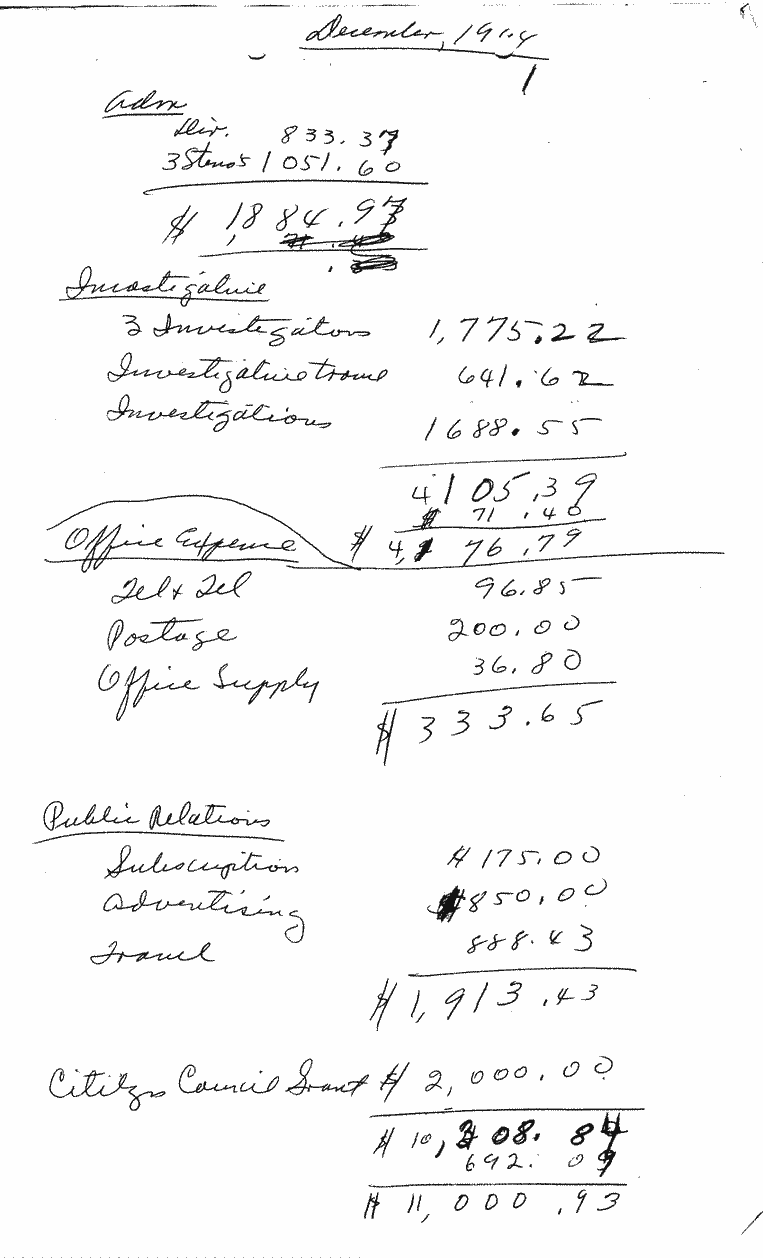 December, 1964
1
Adm
Dir. 833.37
3 Steno's 1051.60
$ 1,884.97
Investigative
3 Investigators 1,775.22
Investigative travel 641.62
Investigations 1688.55
4105.39
71.40
$ 4,176.79
Office Expense
Tel & Tel 96.85
Postage 200.00
Office Supply 36.80
$ 333.65
Public Relations
Subscription $175.00
Advertising $850.00
Travel 888.43
$1,913.43
Citizns Council Grant $ 2,000.00
$ 10,308.84
692.09
$ 11,000.93